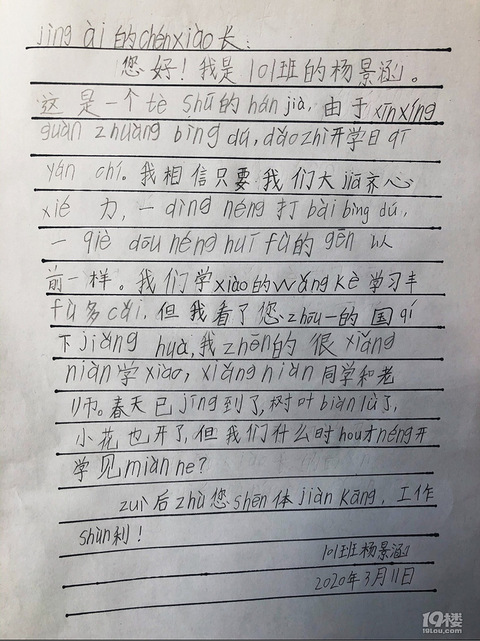 jìng ài的chénxiào长:
您好!我是101班的杨景涵。
这是一个tè shū的hán jià,由于xīnxíng
guān zhuàng bìng dú,dǎo zhì开学日qī
yán chí。我相信只要我们大jiā齐心
xié 力,一dìng néng打bài bìng dú,
一qiè dōu néng huī fù的gēn以
前一样。我们学xiào的wǎng kè学习丰
fù多cǎi,但我看了您zhōu一的国qí
下jiǎng huà,我zhēn的很xiǎng
niàn学xiào,xiǎng niàn同学和老
师。春天已jīng到了,树叶biàn lǜ了,
小花也开了,但我们什么时hou才néng开
学见miàn ne?
zuì后zhù您shēn体jiàn kāng,工作
shùn利!
101班杨景涵
2020年3月11日
19楼
19lou.com